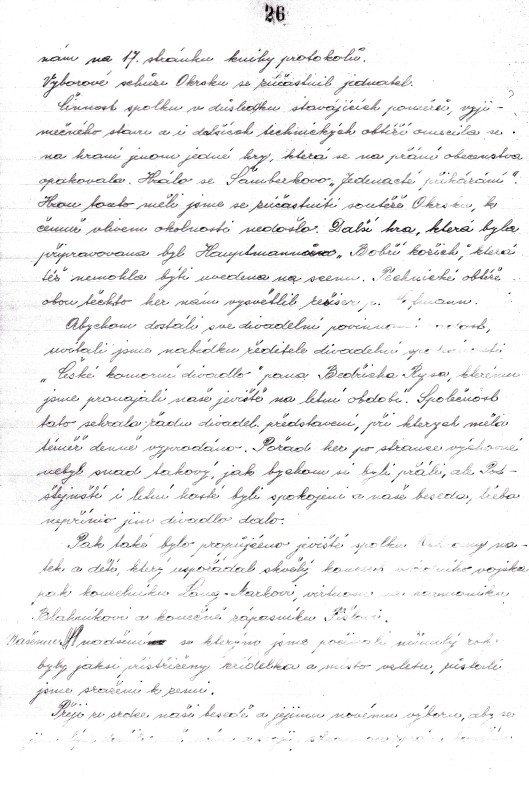 26
nám na 17. stránku knihy protokolů.
Výborové schůze Okrsku se zúčastnil jednatel.
Činnost spolku v důsledku stavajících poměrů, vyji-
mečného stavu a i dalších technických obtíží omezila se
na hraní jenom jedné hry, která se na přání obecenstva
opakovala. Hrálo se Šamberkovo „Jedenácté přikázání".
Hrou touto měli jsme se zúčastniti soutěže Okrsku, k
čemuž vlivem okolností nedošlo. Další hra, která byla
připravovana byl Hauptmannův „Bobří kožich," která
též nemohla býti uvedena na scenu. Technické obtíže
obou těchto her nám vysvětlil režiser p. Hofmann.
Abychom dostáli své divadelní
uvítali jsme nabídku ředitele divadelní společnosti
„České komorní divadlo" pana Bedřicha kterému
jsme pronajali naše jeviště na letní období. Společnost
tato sehrála řadu divadel. představení, při kterých měla
téměř denně vyprodáno. Pořad her po strance výchovné
nebyl snad takový, jak bychom si byli přáli, ale Poš-
štejnští i letní hosté byli spokojeni a naše beseda, třeba
nepřímo jim divadlo dala.
Pak také bylo propůjčeno jeviště spolku Ochrany ma-
tek a dětí, který uspořádal skvělý koncert
pak komikům virtuosu na harmoniku
Blahníkovi a konečně zápasníku
Našemu nadšení se kterým jsme počínali minulý rok
byly jaksi přistřiženy křidélka a místo vzletu, zůstali
jsme sraženi k zemi.
Přeji ze srdce naší besedě a jejímu novému výboru, aby se